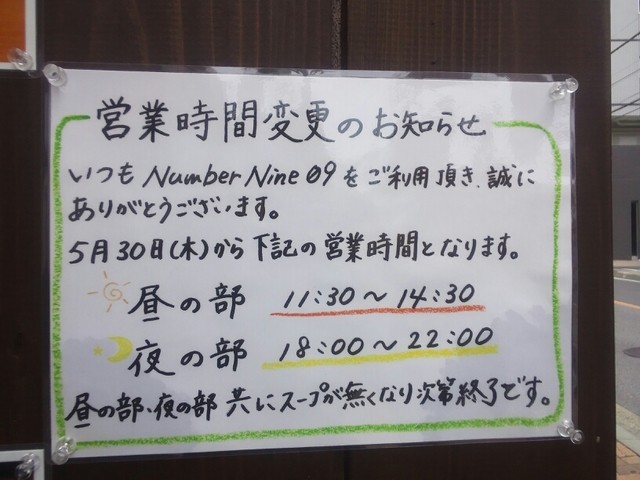 営業時間変更のお知らせ
いつも Number Nine 09 をご利用頂き、誠に
ありがとうございます。
5月30日(木)から下記の営業時間となります。
昼の部 11:30～14:30
夜の部 18:00～22:00
昼の部・夜の部 共にスープが無くなり次第終了です。